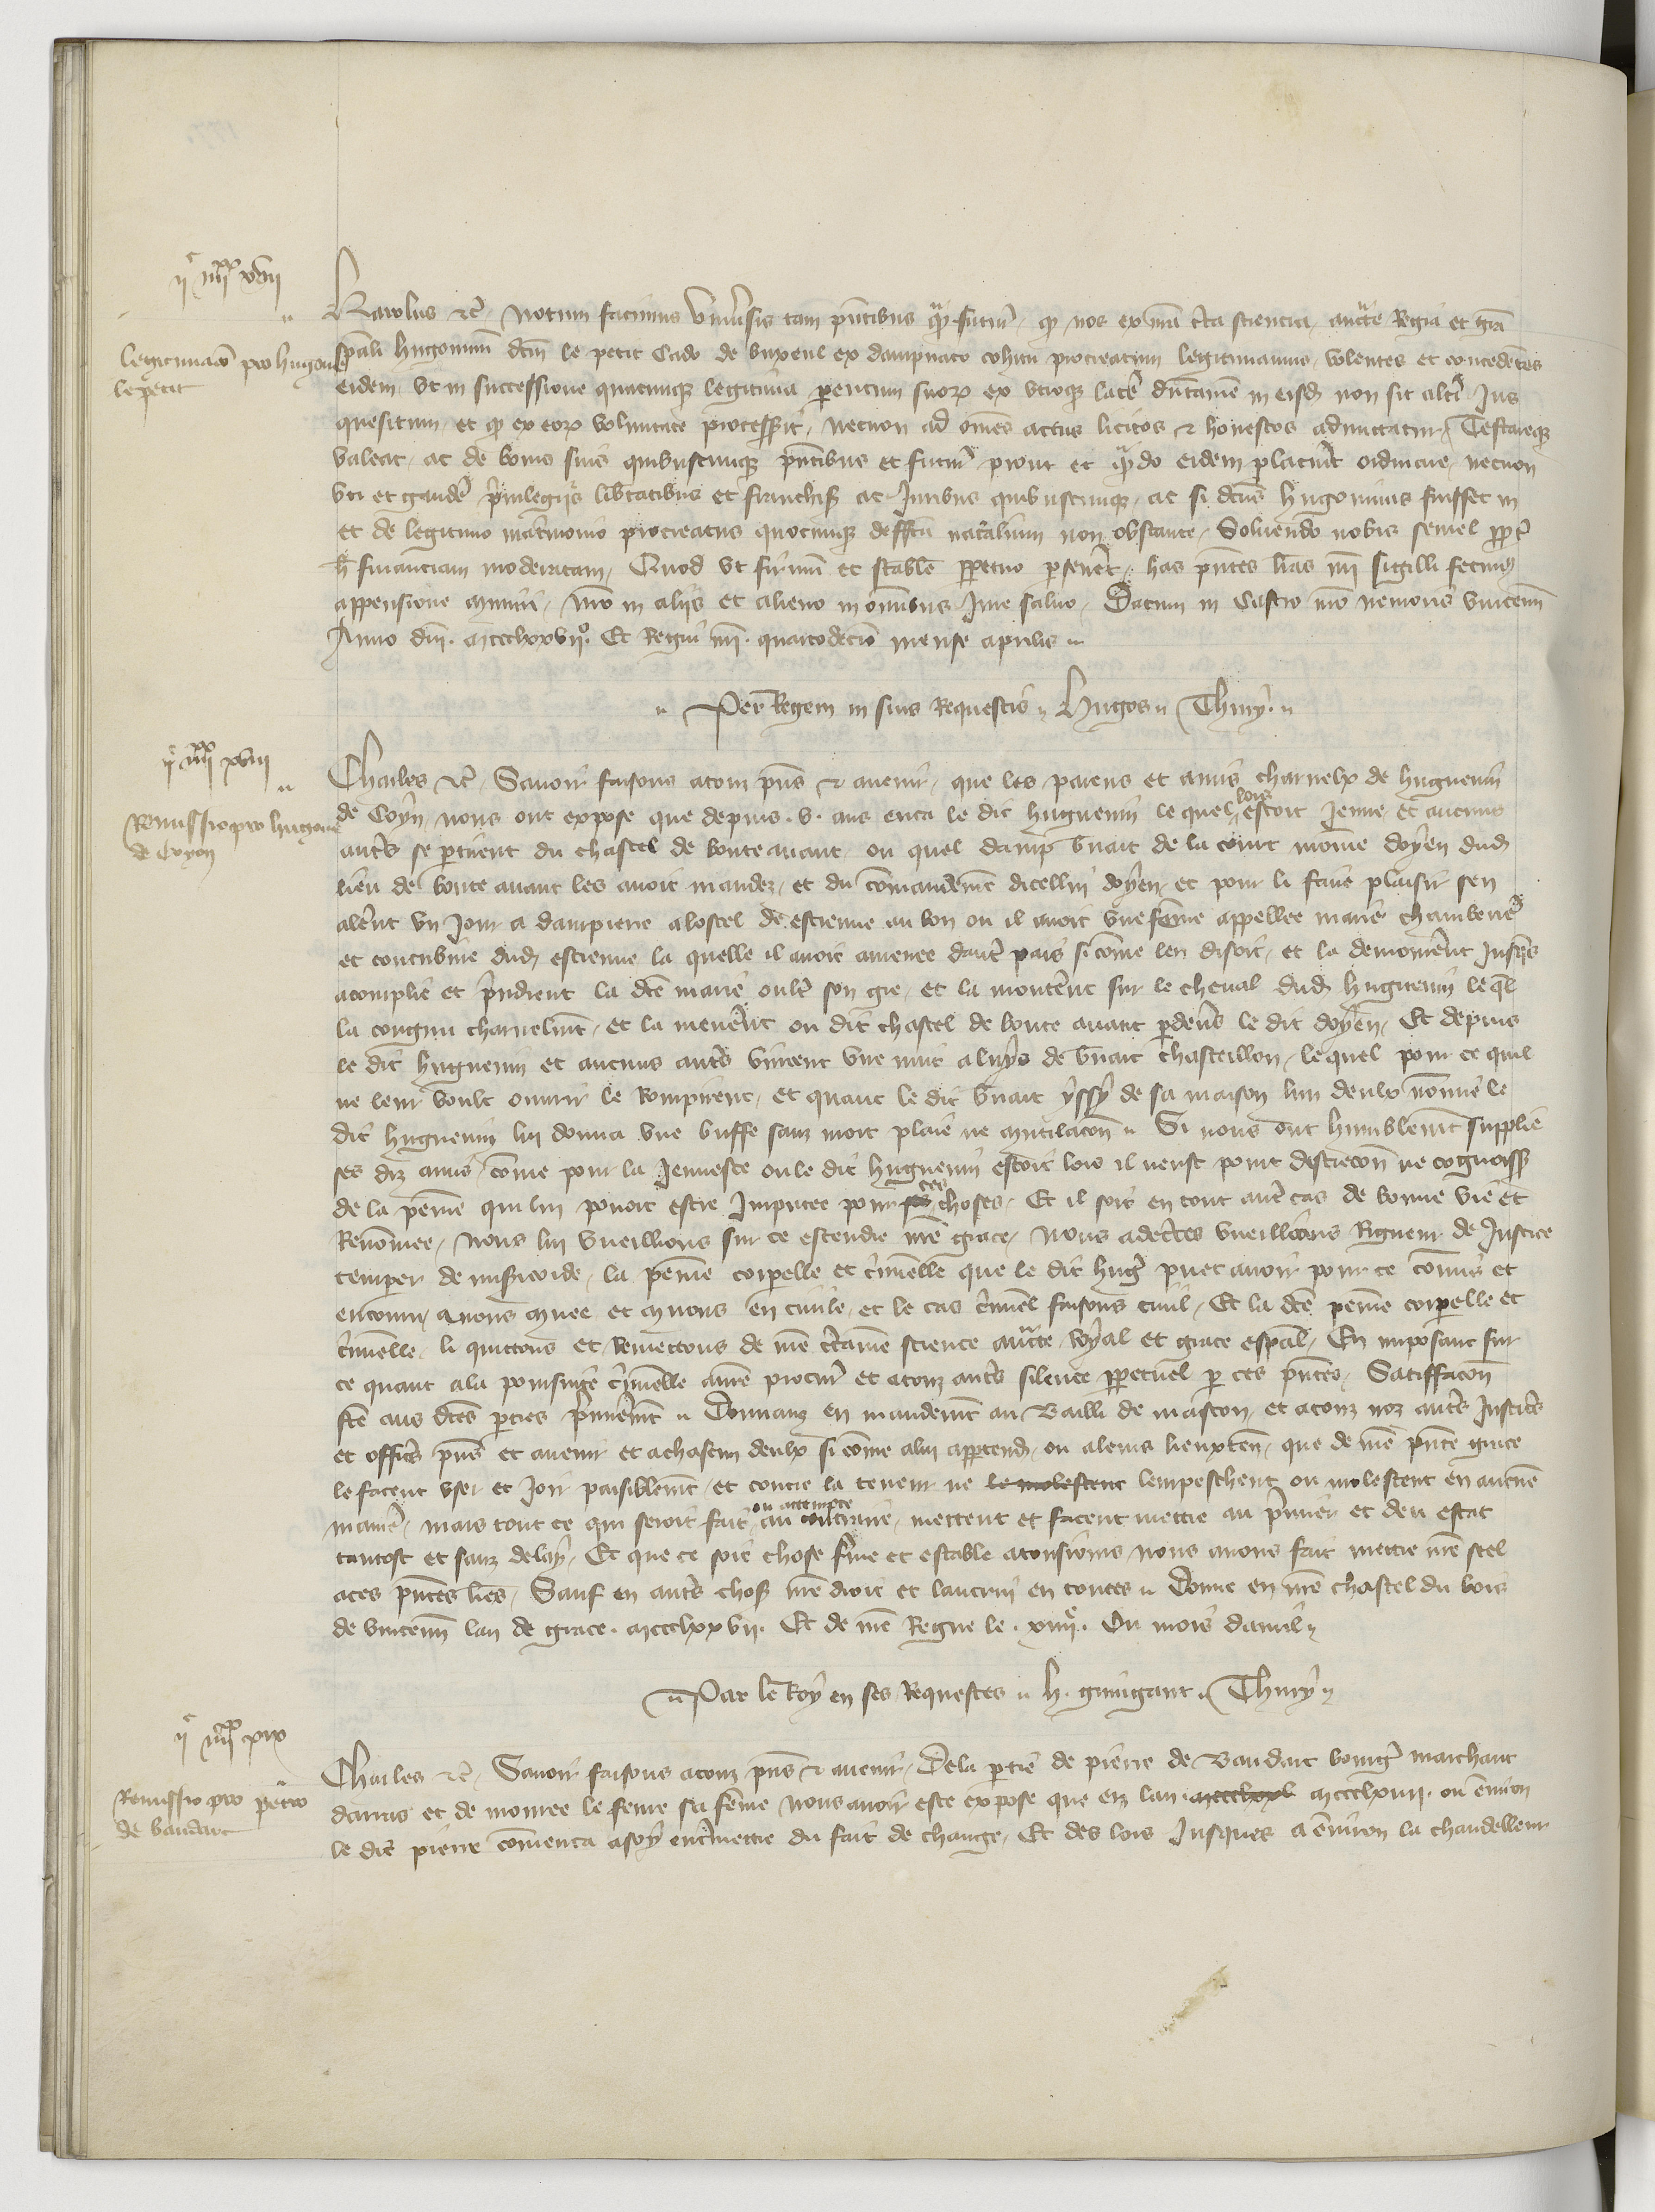 ii^c iiii^xx xvii
Karolus etc. Notum facimus universis tam pñtibus q̃ futuris, q̃ nos ex nr̃a c̃ta sciencia, auctte Regia et gr̃a
Legitimacio pro hugone
le petit
sp̃ali hugoninum dc̃m le petit Cado de buxeul ex dampnato cohitu procreatum legitimamus, volentes et concedentes
eidem, ut in successione quacumque legitima parentum suorum ex utroque late dũtamen in eisd non sit alteri Jus
quesitum, et q̃ ex eorum voluntate processerit, necnon ad omnes actus licitos et honestos admittatur, Testarique
valeat, ac de bonis suis quibuscumque pñtibus et futuris, prout et qñdo eidem placuerit ordinare, necnon
uti et gaudere privilegiis libertatibus et franchisiis ac Juribus quibuscumque, ac si dc̃us hugoninus fuisset in
et de legitimo matrimonio procreatus quocumque deffectu natalium non obstante, Solvendo nobis semel propter
h̃ financiam moderatam, Quod ut firmum et stabile perpetuo perseveret, has pñtes lr̃as nr̃i sigilli fecimus
appensione muniri, nr̃o in aliis et alieno in omnibus Jure salvo, Datum in Castro nr̃o nemoris vincennarum
Anno dñi mccclxxvii°. Et Regni nr̃i quartodecimo mense aprilis
Per Regem in suis Requestis Hugos Thury
ii^c iiii^xx xviii
Charles etc. Savoir faisons a touz p̃ns et avenir, que les parens et amis charnelx de huguenin
Remissio pro hugone
de Coyon
de Coyn, nous ont expose que depuis .v. ans enca le dit huguenin le quel lors estoit Jeune et aucuns
autres se partirent du chastel de boute avant, ou quel damp bernart de la court moine doyen dud
lieu de boute avant les avoit mandez, et du commandement dicellui doyen, et pour li faire plaisir sen
alerent un Jour a dampierre a lostel de estienne au bon ou il avoit une femme appellee marie chamberiere
et concubine dud estienne la quelle il avoit amenee dautre pais si comme len disoit, et la demourerent Jusques
acomplie et prindrent la dc̃e marie oultre son gre, et la monterent sur le cheval dud huguenin lequel
la congnu charnelment, et la menerent ou dit chastel de boute avant pardevers le dit doyen, Et depuis
le dit huguenin et aucuns autres vindrent une nuit a luys de bernart chasteillon, lequel pour ce quil
ne leur voult ouvrir le Rompirent, et quant le dit bernart yssy de sa maison lun deulx nomme le
dit huguenin lui donna une buffe sanz mort plaie ne mutilacion Si nous ont humblement supplie
ses diz amis, comme pour la Jeunesce ou le dit huguenin estoit lors il neust point discrecion ne cognoiss
de la peine qui lui pouoit estre Imputee pour ces choses, Et il soit en tout autre cas de bonne vie et
Renommee, Nous lui vueillions sur ce estendre nr̃e grace, Nous adecertes vueillans Rigueur de Justice
temprer de misericorde, la peine corporelle et criminelle que le dit hug̃ puet avoir pour ce commis et
encouru, avons muee et muons en civile, et le cas criminel faisons civil, Et la dc̃e peine corporelle et
criminelle li quittons et Remettons de nr̃e certaine science auctte Royal et grace espal, En imposant sur
ce quant a la poursuite criminelle a nr̃e procureur et a touz autres silence perpetuel par ces pñtes, Satiffacion
fc̃e aus dc̃es parties premierement Donnanz en mandement au Bailli de mascon, et a touz noz autres Justiciers
et officiers p̃ns et avenir et a chascun deulx si comme a lui appartendra, ou a leurs lieuxtenans, que de nr̃e pñte grace
le facent user et Joir paisiblement, et contre la teneur ne le molestent lempeschent ou molestent en aucune
maniere, mais tout ce qui seroit fait ou attempte au contraire, mettent et facent mettre au premier et deu estat
tantost et sanz delay, Et que ce soit chose ferme et estable a tousiours, nous avons fait mettre nr̃e scel
a ces pñtes lr̃es, Sauf en autres choses nr̃e droit et lautrui en toutes Donne en nr̃e chastel du bois
de vincennes lan de grace mccclxxvii. Et de nr̃e Regne le .xiiii^e. Ou mois davril
Par le Roy en ses Requestes h. guingant Thury
ii^c iiii^xx xix
Charles etc. Savoir faisons a touz p̃ns et avenir, De la partie de pierre de Baudart bourgois marchant
Remissio pro petro
de baudart
darras et de le femme nous avoir este expose que en lan mccclxiiii. ou environ
le dit pierre commenca a soy entremettre du fait de change, Et des lors Jusques a environ la chandelleur